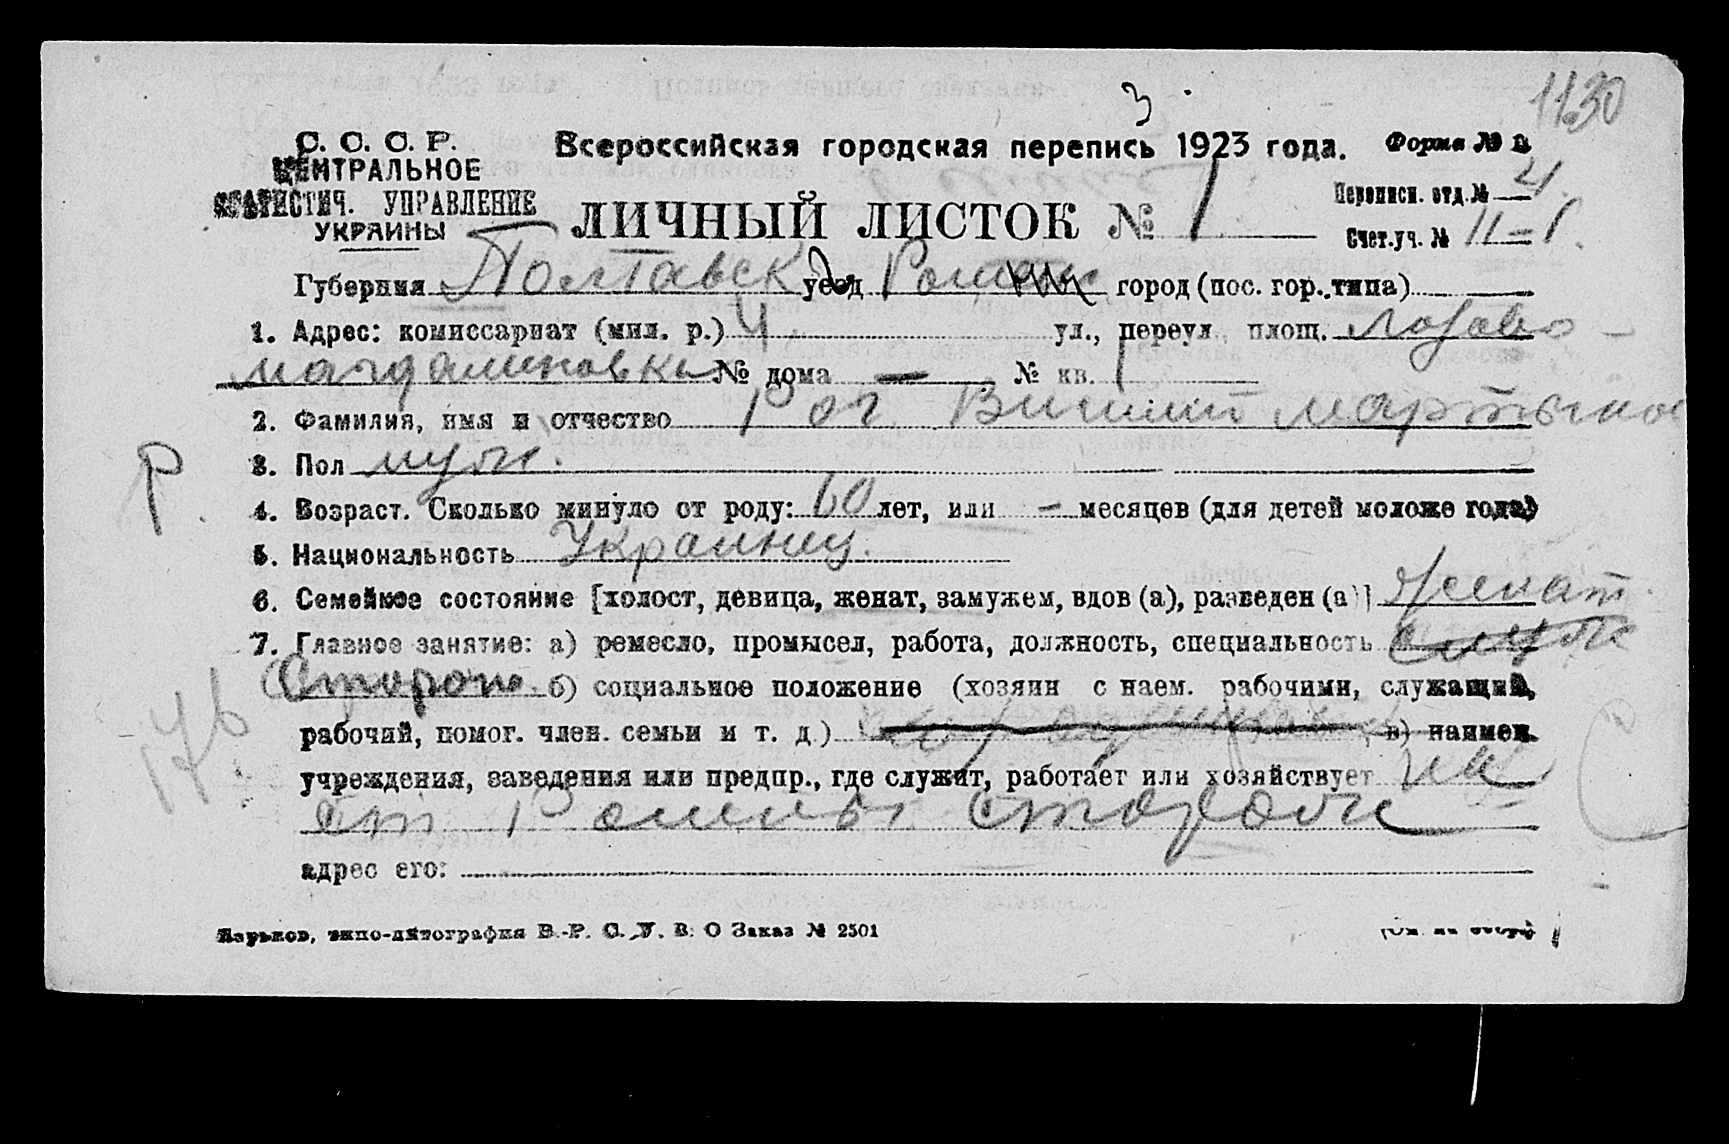 1130
3
С. С. С. Р. Всероссийская городская перепись 1923 года. Форма № В
ЦЕНТРАЛЬНОЕ
СТАТИСТИЧ. УПРАВЛЕНИЕ
УКРАИНЫ
ЛИЧНЫЙ ЛИСТОК № 1
Переписн. отд. № 4.
Счет. уч. № 11-1.
Губерния Полтавск уезд Ромен город (пос. гор. типа)
1. Адрес: комиссариат (мил. р.) 4. ул., переул площ. Лозово-
магдалиновка № дома — № кв. 1
2. Фамилия, имя и отчество Рог мартынов
Р.
3. Пол муж.
4. Возраст. Сколько минуло от роду: 60 лет, или — месяцев (для детей моложе года)
5. Национальность Украинец.
6. Семейное состояние [холост, девица, женат, замужем, вдов (а), разведен (а)] Женат.
7. Главное занятие: а) ремесло, промысел, работа, должность, специальность
Сторож б) социальное положение (хозяин с наем. рабочими, служащий,
рабочий, помог. член. семьи и т. д.) в) наимен.
учреждения, заведения или предпр., где служит, работает или хозяйствует на
ст Ромны сторож
адрес его:
Харьков, типо-литография В.-Р. С. У. В. О Заказ № 2501